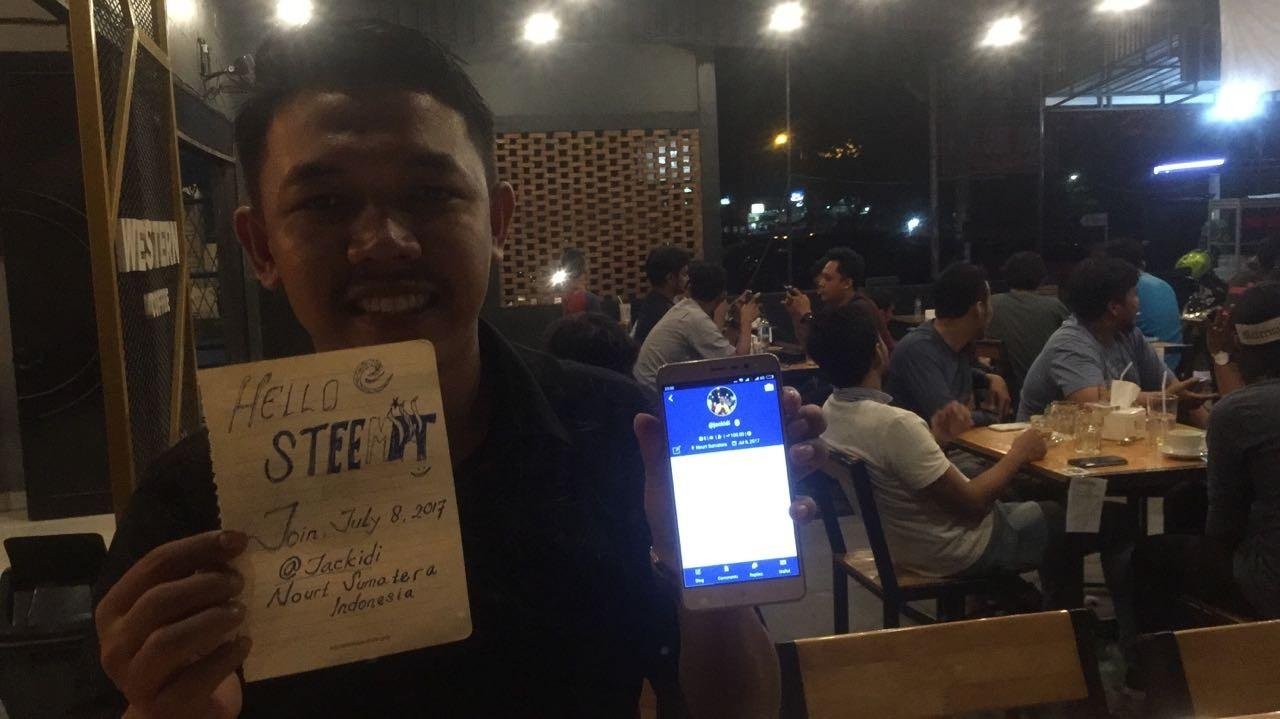 WESTERN
HELLO
STEEMIT
Join, July 8, 2017
@Jackidi
Nourt Sumatera
Indonesia
@jackidi
Nourt Sumatera Jul 8, 2017
Blog Comments Replies Wallet